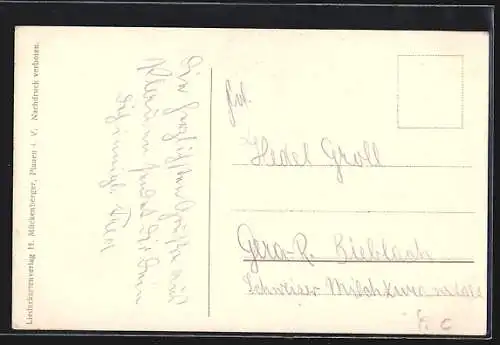 Liederkartenverlag H. Mückenberger, Plauen i. V. Nachdruck verboten.
Die herzlichsten Grüße aus
Plauen sendet Dir Dein
Dich innigl.
Frl.
Hedel Groll
Gera-R. Bieblach
Schweizer Milchkuranstalt